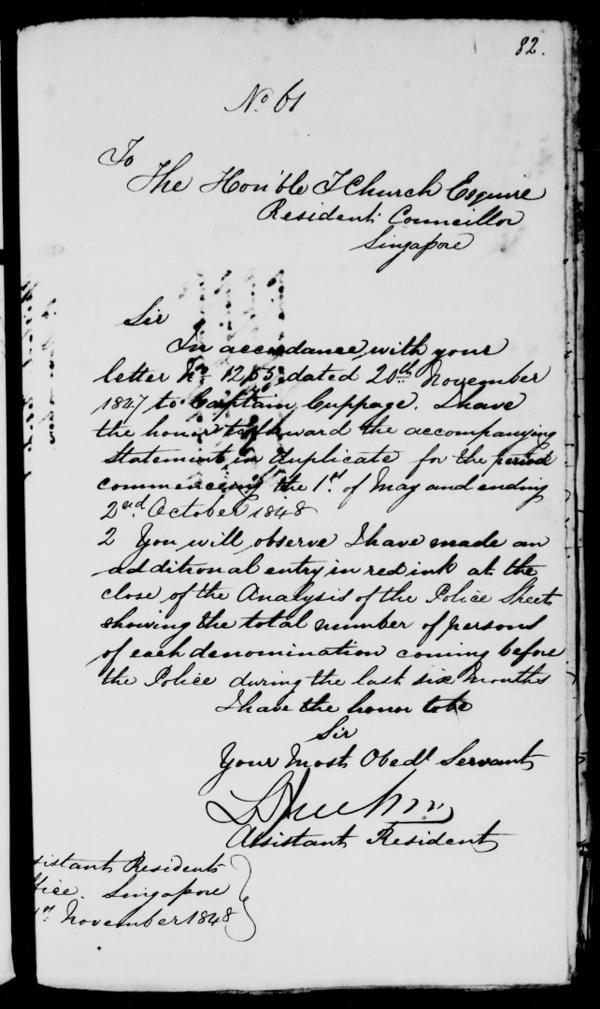 82.
No. 61
To
The Hon'ble T Church Esquire
Resident Councillor
Singapore
Sir
In accordance with your
letter No. 1255 dated 20th. November
1847 to Captain Cuppage. I have
the honor to forward the accompanying
Statement in duplicate for the period
commencing the 1st. of May and ending
2nd. October 1848
2 You will observe I have made an
additional entry in red ink at the
close of the Analysis of the Police Sheets
showing the total number of persons
of each denomination coming before
the Police during the last six months
I have the honor to be
Sir
Your Most Obedt. Servant
Assistant Resident
sistant Residents
ffice. Singapore
November 1848